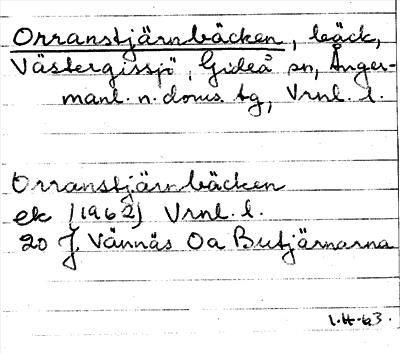 Orranstjärnbäcken, bäck,
Västergissjö, Gideå sn, Ånger-
manl. n. doms. tg, Vrnl. l.
Orranstjärnbäcken
ek (1962) Vrnl. l.
20 J Vännäs Oa Butjärnarna
1.H-63.